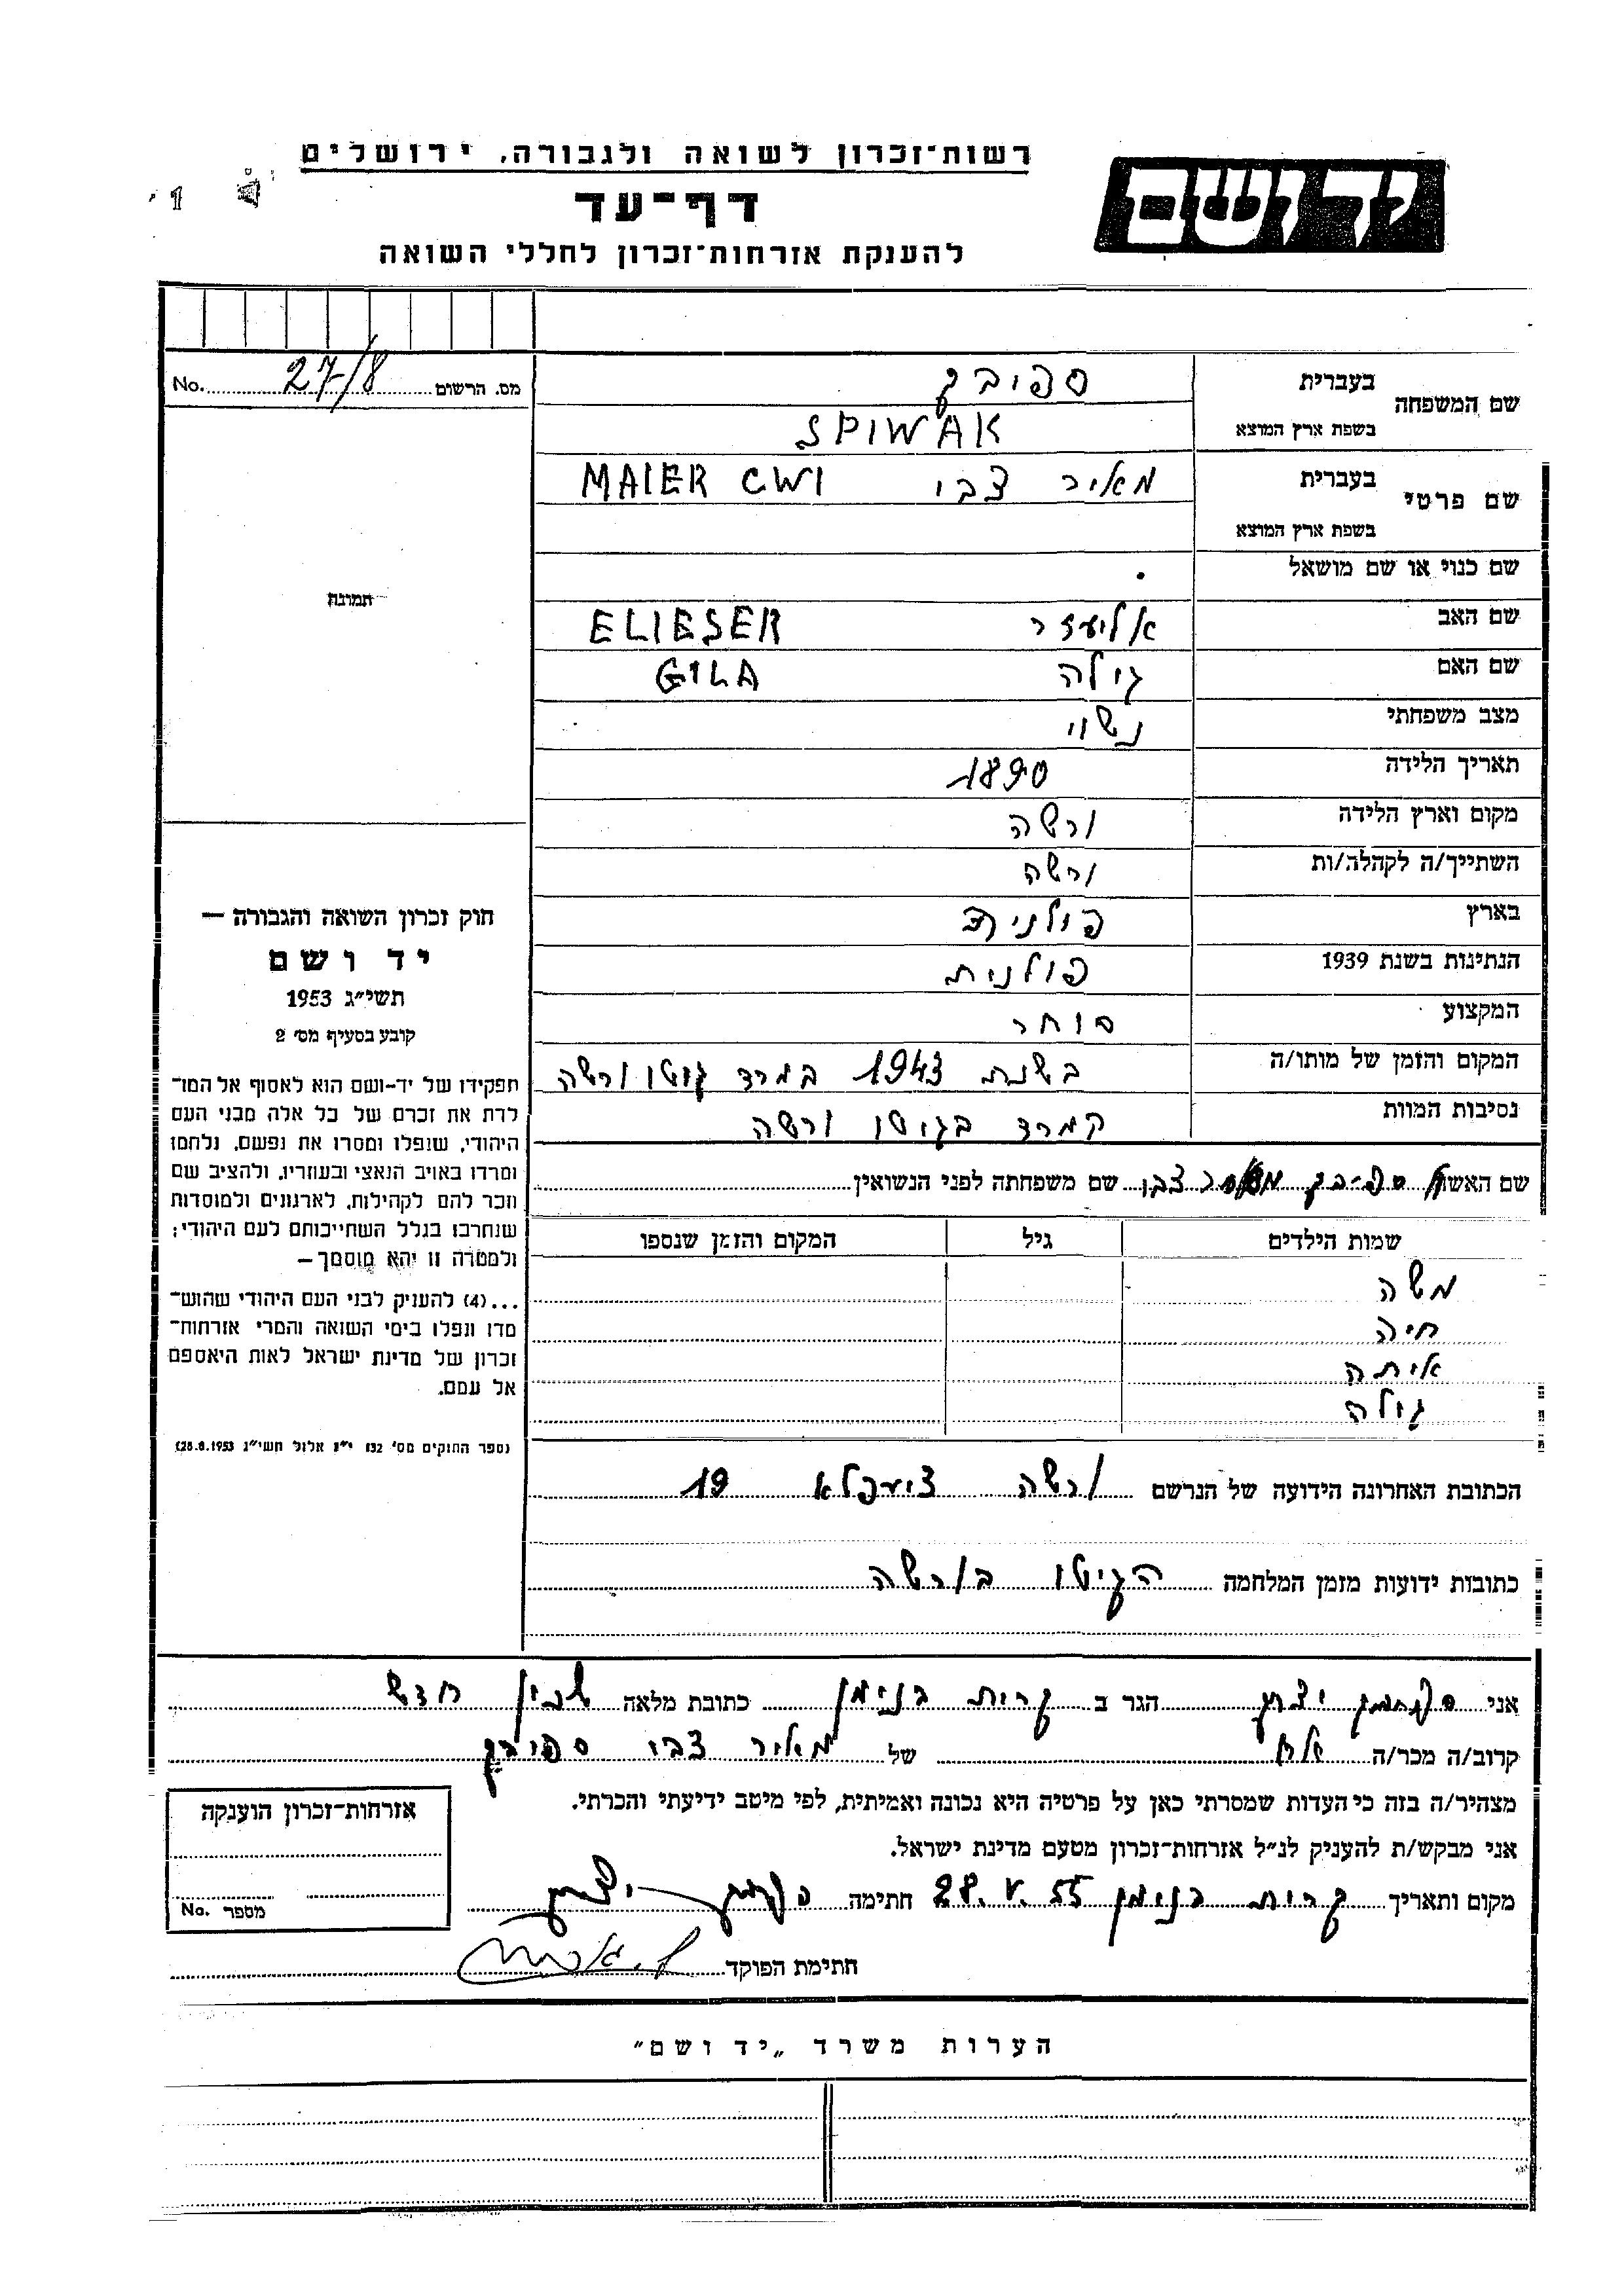 רשות־זכרון לשואה ולגבורה, ירושלים
ידושם
דף־עד
להענקת אזרחות־זכרון לחללי השואה
1
מס. הרשום 27/8 No.
שם המשפחה
בעברית ספיבק
בשפת ארץ המוצא SPIWAK
שם פרטי
בעברית מאיר צבי MAIER CWI
בשפת ארץ המוצא
שם כנוי או שם מושאל
שם האב אליעזר ELIESER
שם האם גילה GILA
מצב משפחתי נשוי
תאריך הלידה 1890
מקום וארץ הלידה ורשה
השתייך/ה לקהלה/ות ורשה
בארץ פולניה
הנתינות בשנת 1939 פולנית
המקצוע סוחר
המקום והזמן של מותו/ה בשנת 1943 במרד גטו ורשה
נסיבות המוות במרד בגיטו ורשה
שם האשה ספיבק צבי שם משפחתה לפני הנשואין
שמות הילדים גיל המקום והזמן שנספו
משה
חיה
איתה
גילה
הכתובת האחרונה הידועה של הנרשם ורשה ציעפלא 19
כתובות ידועות מזמן המלחמה הגיטו בורשה
תמונה
חוק זכרון השואה והגבורה —
יד ושם
תשי״ג 1953
קובע בסעיף מס׳ 2
תפקידו של יד־ושם הוא לאסוף אל המו־
לדת את זכרם של כל אלה מבני העם
היהודי, שנפלו ומסרו את נפשם, נלחמו
ומרדו באויב הנאצי ובעוזריו, ולהציב שם
וזכר להם לקהילות, לארגונים ולמוסדות
שנחרבו בגלל השתייכותם לעם היהודי;
ולמטרה זו יהא מוסמך —
...(4) להעניק לבני העם היהודי שהוש־
מדו ונפלו בימי השואה והמרי אזרחות־
זכרון של מדינת ישראל לאות היאספם
אל עמם.
(ספר החוקים מס׳ 132 י״ז אלול תשי״ג 28.8.1953)
אני יצחק הגר ב קרית בנימין כתובת מלאה שכון חדש
קרוב/ה מכר/ה אח של מאיר צבי ספיבק
מצהיר/ה בזה כי העדות שמסרתי כאן על פרטיה היא נכונה ואמיתית, לפי מיטב ידיעתי והכרתי.
אני מבקש/ת להעניק לנ״ל אזרחות־זכרון מטעם מדינת ישראל.
מקום ותאריך קרית בנימין 28. V. 55 חתימה
חתימת הפוקד
אזרחות־זכרון הוענקה
מספר No.
הערות משרד „יד ושם״